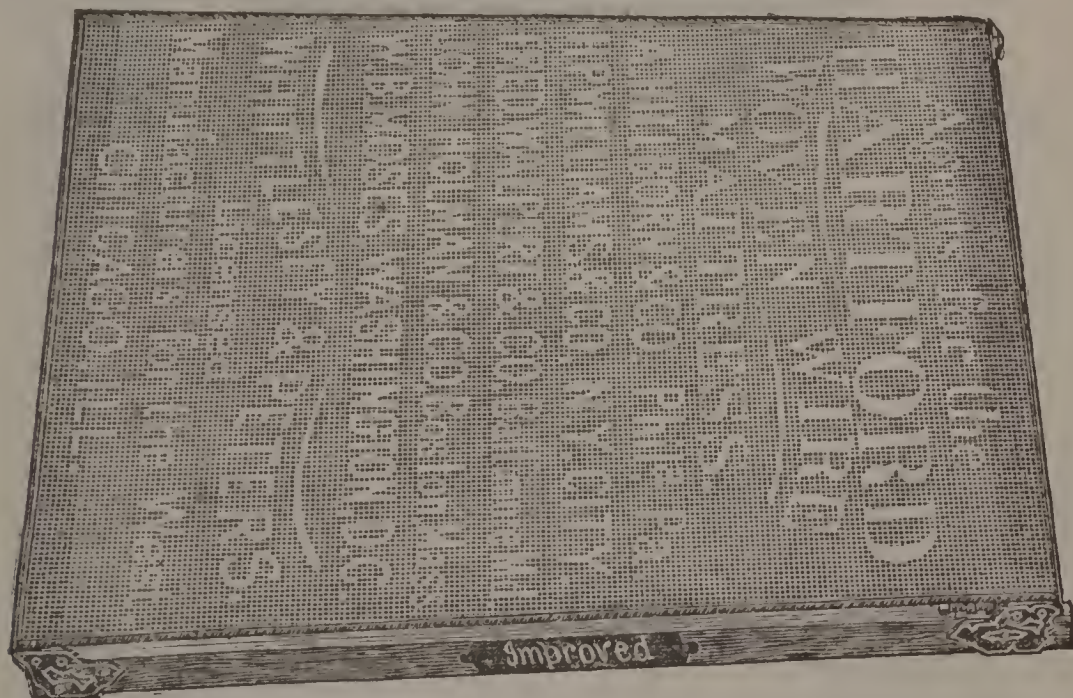 Agents for the
HARTFORD
WOVEN WIRE
MATTRESS.
& CO. Phila. Pa.
WILLIAMS & CO. N.Y. CITY.
& CO. Baltimore Md.
HOLMAN & CO. Boston Mass.
W.B. MOSES WASHINGTON D.C.
WHITTLESY & PETERS.
Licensed
Manufacturers for the West.
CHICAGO, ILL.
Improved